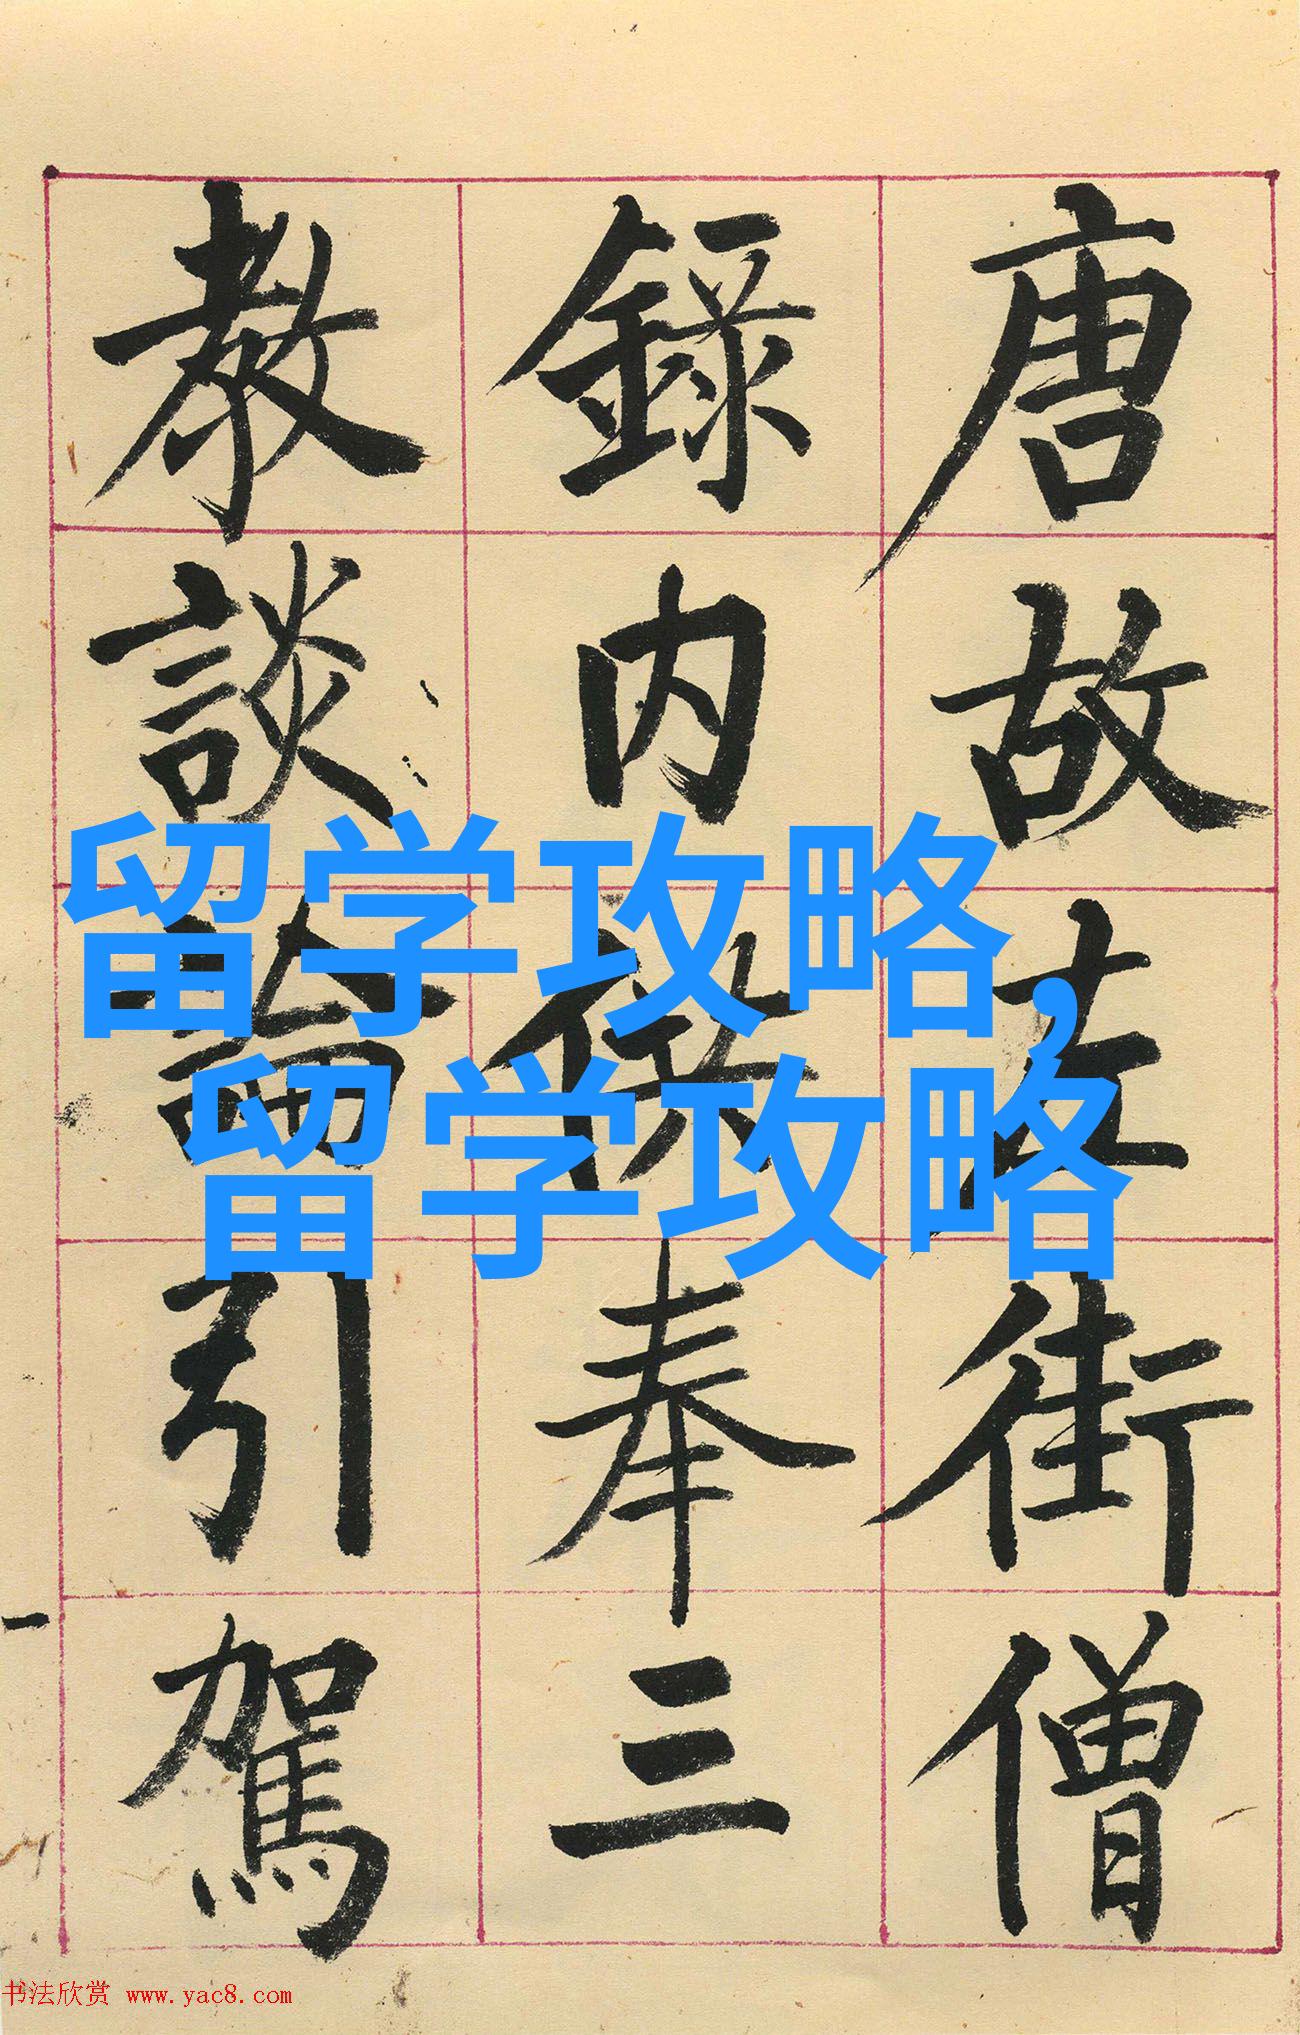 唐故左街僧
錄内供奉三
教談論引駕
留学攻略,
留学攻略
书法欣赏 www.yac8.com